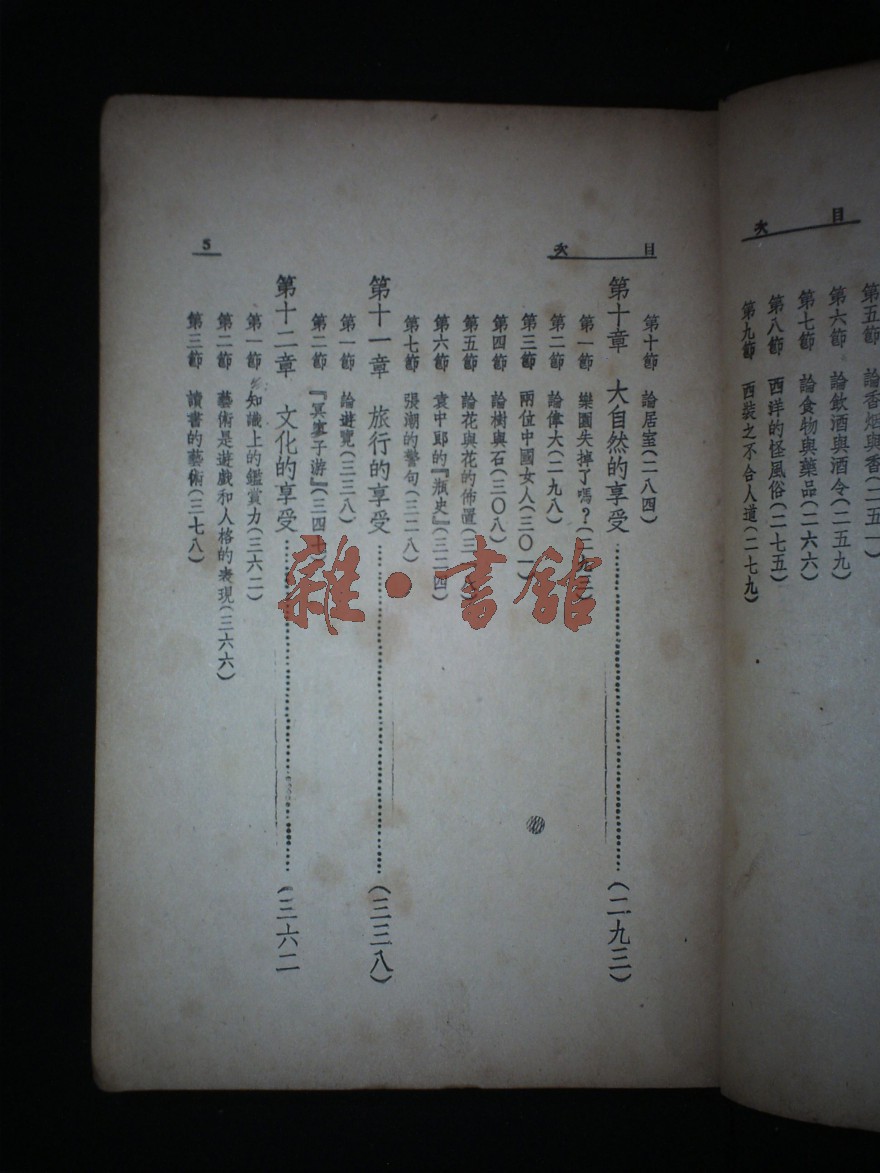 目次
第五節 論香烟與香(二五一
第六節 論飲酒與酒令(二五九)
第七節 論食物與藥品(二六六)
第八節 西洋的怪風俗(二七五)
第九節 西裝之不合人道(二七九)
目次
第十節 論居室(二八四)
第十章 大自然的享受(二九三)
第一節 樂園失掉了嗎?(二九三)
第二節 論偉大(二九八)
第三節 兩位中國女人(三〇一)
第四節 論樹與石(三〇八)
第五節 論花與花的佈置(三
第六節 袁中郎的『瓶史』(三二四)
第七節 張潮的警句(三二八)
第十一章 旅行的享受(三三八)
第一節 論遊覽(三三八)
第二節 『冥寥子游』(三四
第十二章 文化的享受(三六二
第一節 知識上的鑑賞力(三六二)
第二節 藝術是遊戲和人格的表現(三六六)
第三節 讀書的藝術(三七八)
5
雜·書館